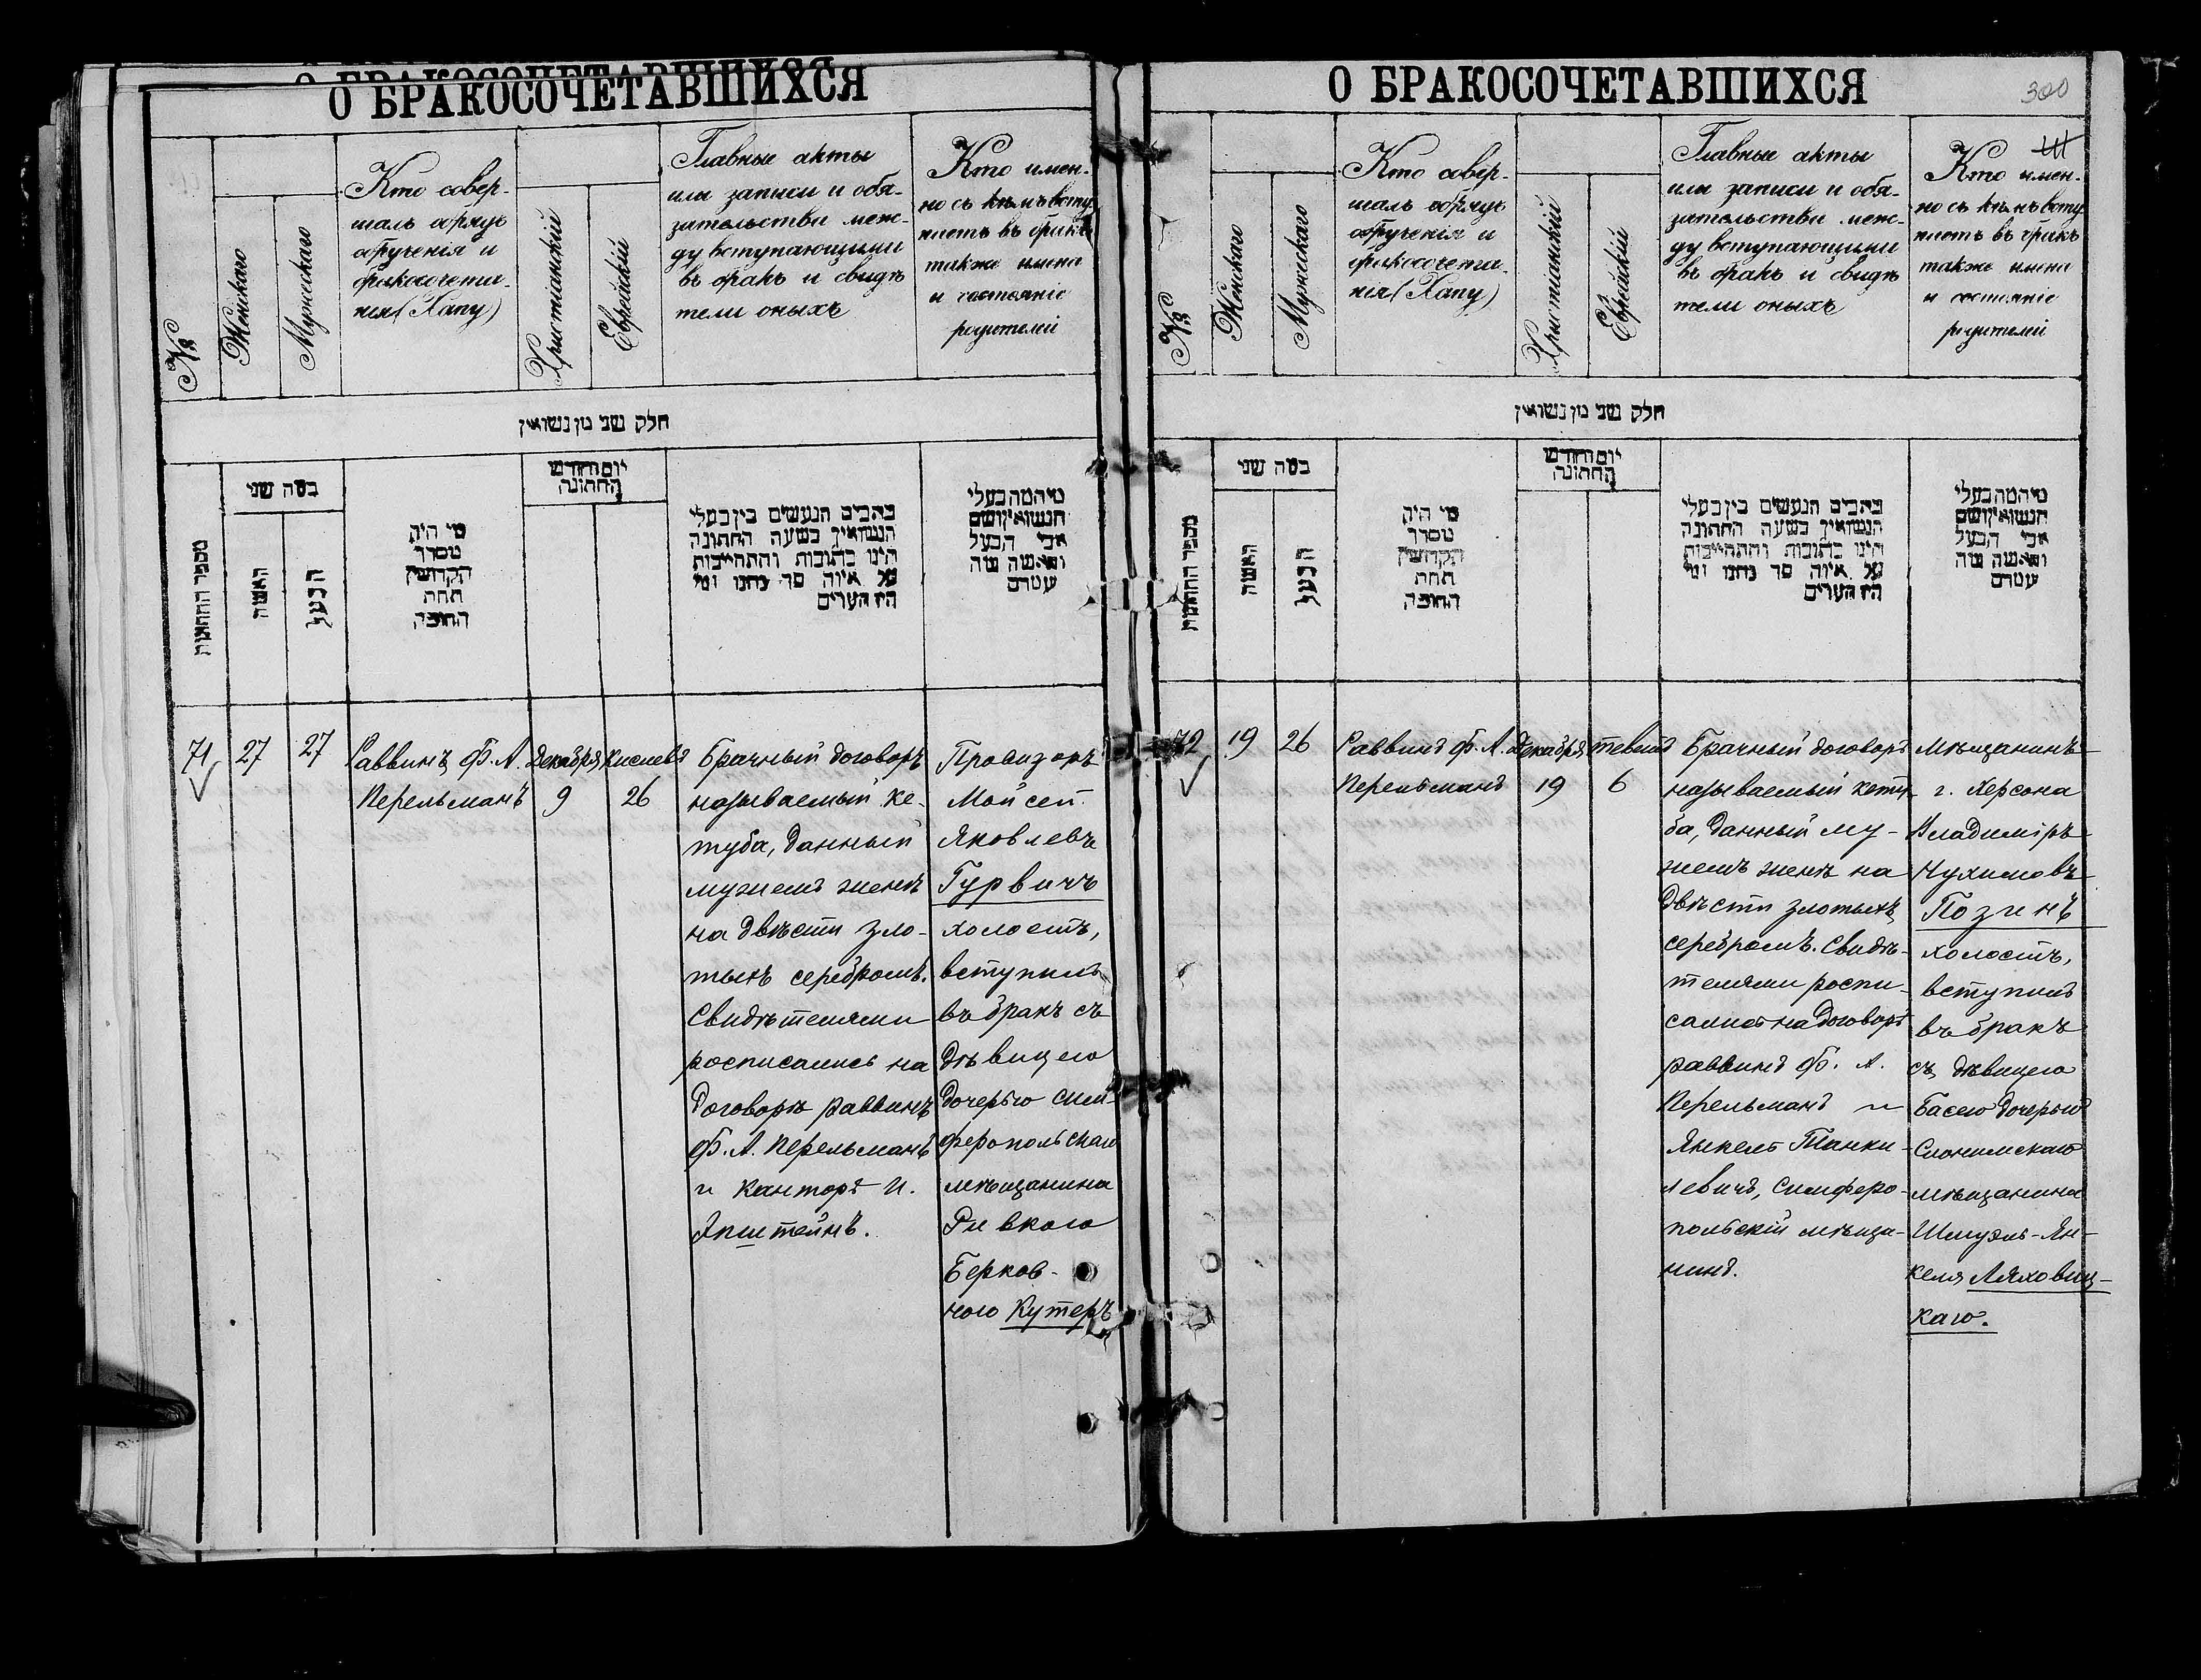 О БРАКОСОЧЕТАВШИХСЯ
№
Женскаго
Мужескаго
Кто совер-
шалъ обрядъ
обрученія и
бракосочета-
нія (Хапу)
Христіанскій
Еврейскій
Главные акты
или записи и обя-
зательства меж-
ду вступающими
въ бракъ и свидѣ
тели оныхъ
Кто имен-
но съ кѣмъ всту
паетъ въ бракъ
также имена
и состояніе
родителей
חלק שני מן נשואין
מספר החתונות
כמה שני
האשה
הבעל
מי היה
מסדר
הקדושין
תחת
החופה
יום וחודש
החתונה
כתבים הנעשים בין בעלי
הנשואין בשעה החתונה
היינו כתובות והתחייבות
על איזה סך נתנו ומי
היו העדים
מי המה בעלי
הנשואין ושם
אבי הבעל
והאשה
71
27
27
Раввинъ Ф. А.
Перельманъ
Декабря
9
Кислевъ
26
Брачный договоръ
называемый Ке-
туба, данный
мужемъ женѣ
на двѣсти зло-
тыхъ серебромъ.
Свидѣтелями
росписались на
договорѣ раввинъ
Ф. А. Перельманъ
и Канторъ И.
Эпштейнъ.
Провизоръ
Мойсей
Яковлевъ
Гурвичъ
холостъ,
вступилъ
въ бракъ съ
дѣвицею
дочерью Сим-
феропольскаго
мѣщанина
Ривкою
Берков-
ною Кутеръ
О БРАКОСОЧЕТАВШИХСЯ
300
№
Женскаго
Мужескаго
Кто совер-
шалъ обрядъ
обрученія и
бракосочета-
нія (Хапу)
Христіанскій
Еврейскій
Главные акты
или записи и обя-
зательства меж-
ду вступающими
въ бракъ и свидѣ
тели оныхъ
Кто имен-
но съ кѣмъ всту
паетъ въ бракъ
также имена
и состояніе
родителей
חלק שני מן נשואין
מספר החתונות
כמה שני
האשה
הבעל
מי היה
מסדר
הקדושין
תחת
החופה
יום וחודש
החתונה
כתבים הנעשים בין בעלי
הנשואין בשעה החתונה
היינו כתובות והתחייבות
על איזה סך נתנו ומי
היו העדים
מי המה בעלי
הנשואין ושם
אבי הבעל
והאשה
72
19
26
Раввинъ Ф. А.
Перельманъ
Декабря
19
Тевисъ
6
Брачный договоръ
называемый кету-
ба, данный му-
жемъ женѣ на
двѣсти злотыхъ
серебромъ. Свидѣ-
телями роспи-
сались на договорѣ
раввинъ Ф. А.
Перельманъ и
Янкель Танки-
левичъ, Симферо-
польскій мѣща-
нинъ.
Мѣщанинъ
г. Херсона
Владиміръ
Нухимовъ
Позинъ
холостъ,
вступилъ
въ бракъ
съ дѣвицею
Басею дочерью
Слонимскаго
мѣщанина
Шмуэль-Ян-
келя Ляховиц-
каго.